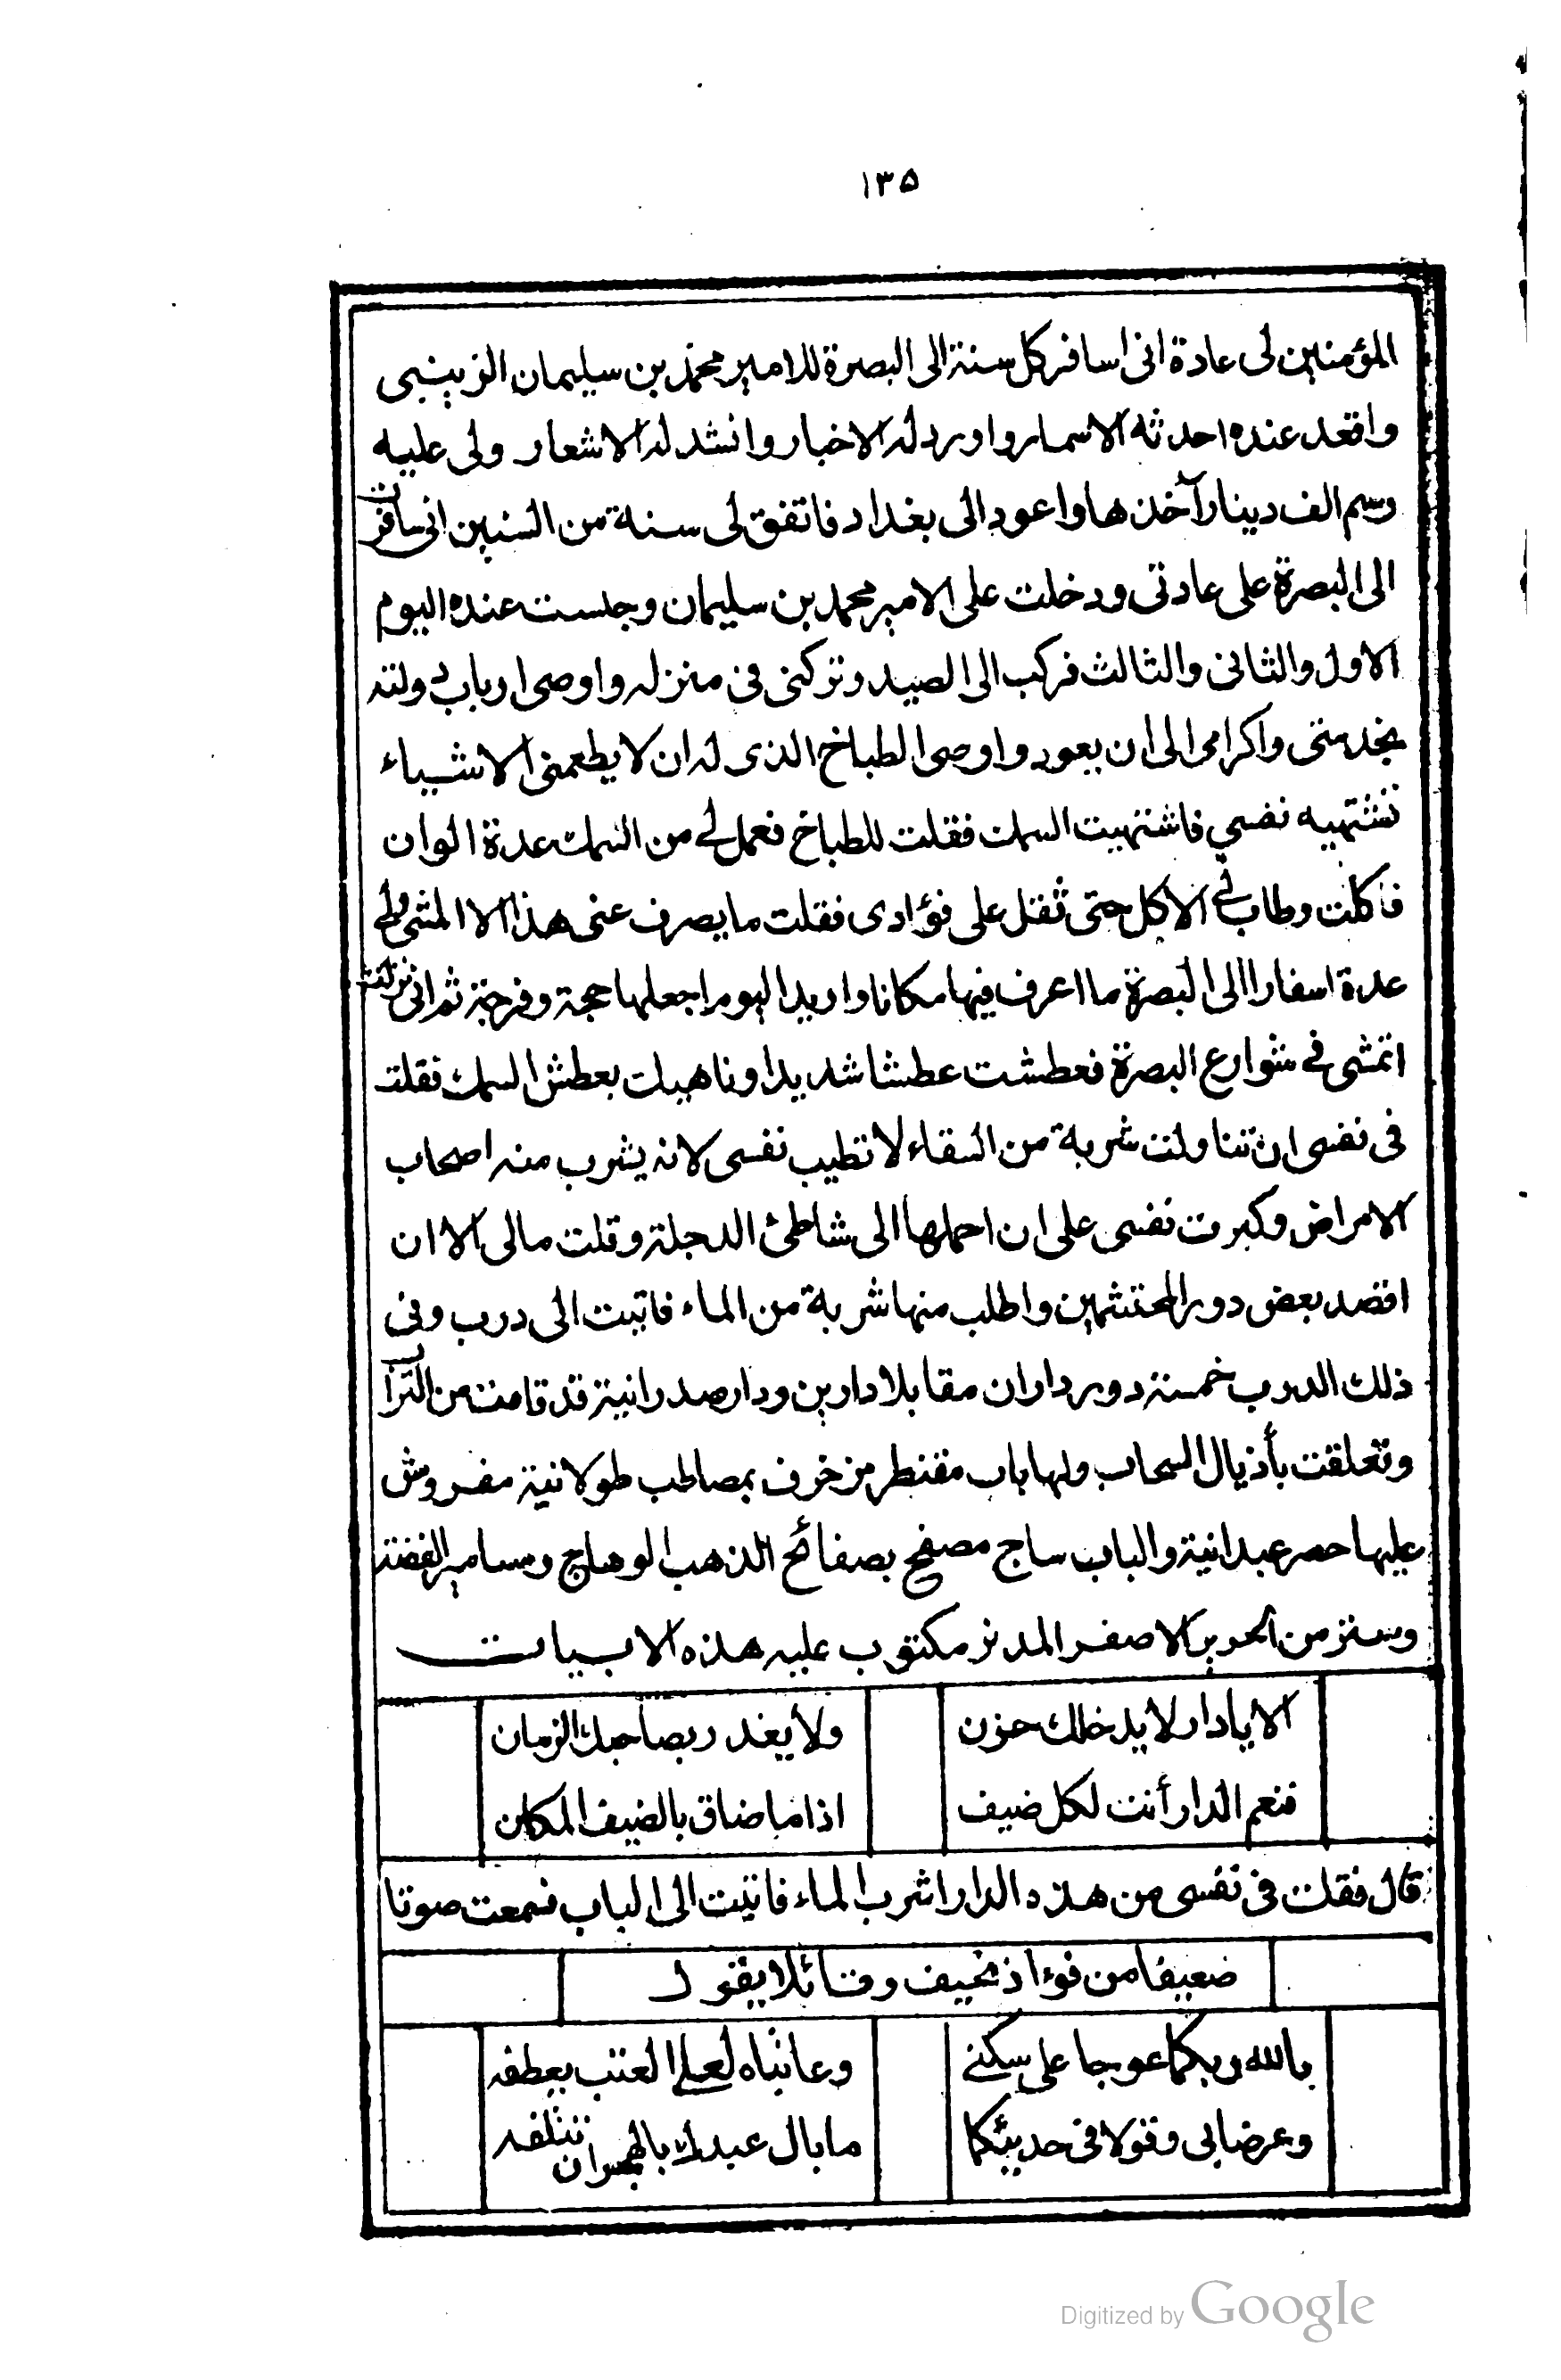 ١٣٥
المؤمنين لى عادة انى اسافر كل سنة الى البصرة للامير محمد بن سليمان الزينبى
واقعد عنده احدثه الاسمار واورد له الاخبار وانشد له الاشعار ولى عليه
رسم الف دينار آخذها واعود الى بغداد فاتفق لى سنة من السنين انى سافرت
الى البصرة على عادتى ودخلت على الامير محمد بن سليمان وجلست عنده اليوم
الاول والثانى والثالث فركب الى الصيد وتركنى فى منزله واوصى ارباب دولته
بخدمتى واكرامى الى ان يعود واوصى الطباخ الذى له ان لا يطعمنى الا شياء
تشتهيه نفسي فاشتهيت السمك فقلت للطباخ فعمل لے من السمك عدة الوان
فأكلت وطاب لے الاكل حتى ثقل على فؤادى فقلت ما يصرف عنى هذا الا المشى ولے
عدة اسفارا الى البصرة ما اعرف فيها مكانا واريد اليوم اجعلها حجة وفرجة ثم انى نزلت
اتمشى فے شوارع البصرة فعطشت عطشا شديدا وناهيك بعطش السمك فقلت
فى نفسى ان تناولت شربة من السقاء لا تطيب نفسى لانه يشرب منه اصحاب
الامراض وكبرت نفسى على ان احملها الى شاطئ الدجلة وقلت مالى الا ان
اقصد بعض دور المحتشمين واطلب منها شربة من الماء فاتيت الى درب وفى
ذلك الدرب خمسة دور داران مقابلا دارين ودار صدرانية قد قامت من التراب
وتعلقت بأذيال السحاب ولها باب مقنطر مزخرف بمصاطب طولانية مفروش
عليها حصر عبدانية والباب ساج مصفح بصفائح الذهب الوهاج ومسامير الفضة
وستر من الحرير الاصفر المدنر مكتوب عليه هذه الابيات
الا يا دار لا يدخلك حزن ولا يغدر بصاحبك الزمان
فنعم الدار أنت لكل ضيف اذا ما ضاق بالضيف المكان
قال فقلت فى نفسى من هذه الدار اشرب الماء فاتيت الى الباب فسمعت صوتا
ضعيفا من فوءاذ نحيف وقائلا يقول
بالله ربكما عوجا على سكنے وعاتباه لعل العتب يعطفه
وعرضا بى وقولا فى حديثكما ما بال عبدك بالهجران تتلفه
Digitized by Google